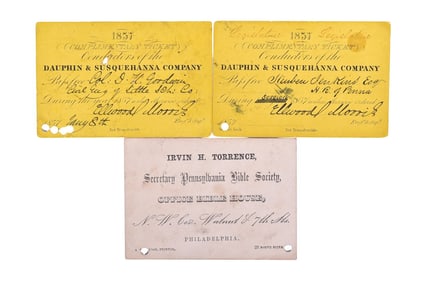 1857
COMPLIMENTARY TICKET
Conductors of the
DAUPHIN & SUSQUEHANNA COMPANY
Pass for Col. D. H. Goodwin
Civl Eng of Little Sch: Co:
During the
Ellwood Morris
Jany 8th
Not Transferable.
Legislative Legislature
1857
COMPLIMENTARY TICKET
Conductors of the
DAUPHIN & SUSQUEHANNA COMPANY
Pass for Reuben Jenkins Esq
H. R. of Penna
During the
Ellwood Morris
Not Transferable.
IRVIN H. TORRENCE,
Secretary Pennsylvania Bible Society,
OFFICE BIBLE HOUSE,
N. W. Cor. Walnut & 7th Sts.
PHILADELPHIA.